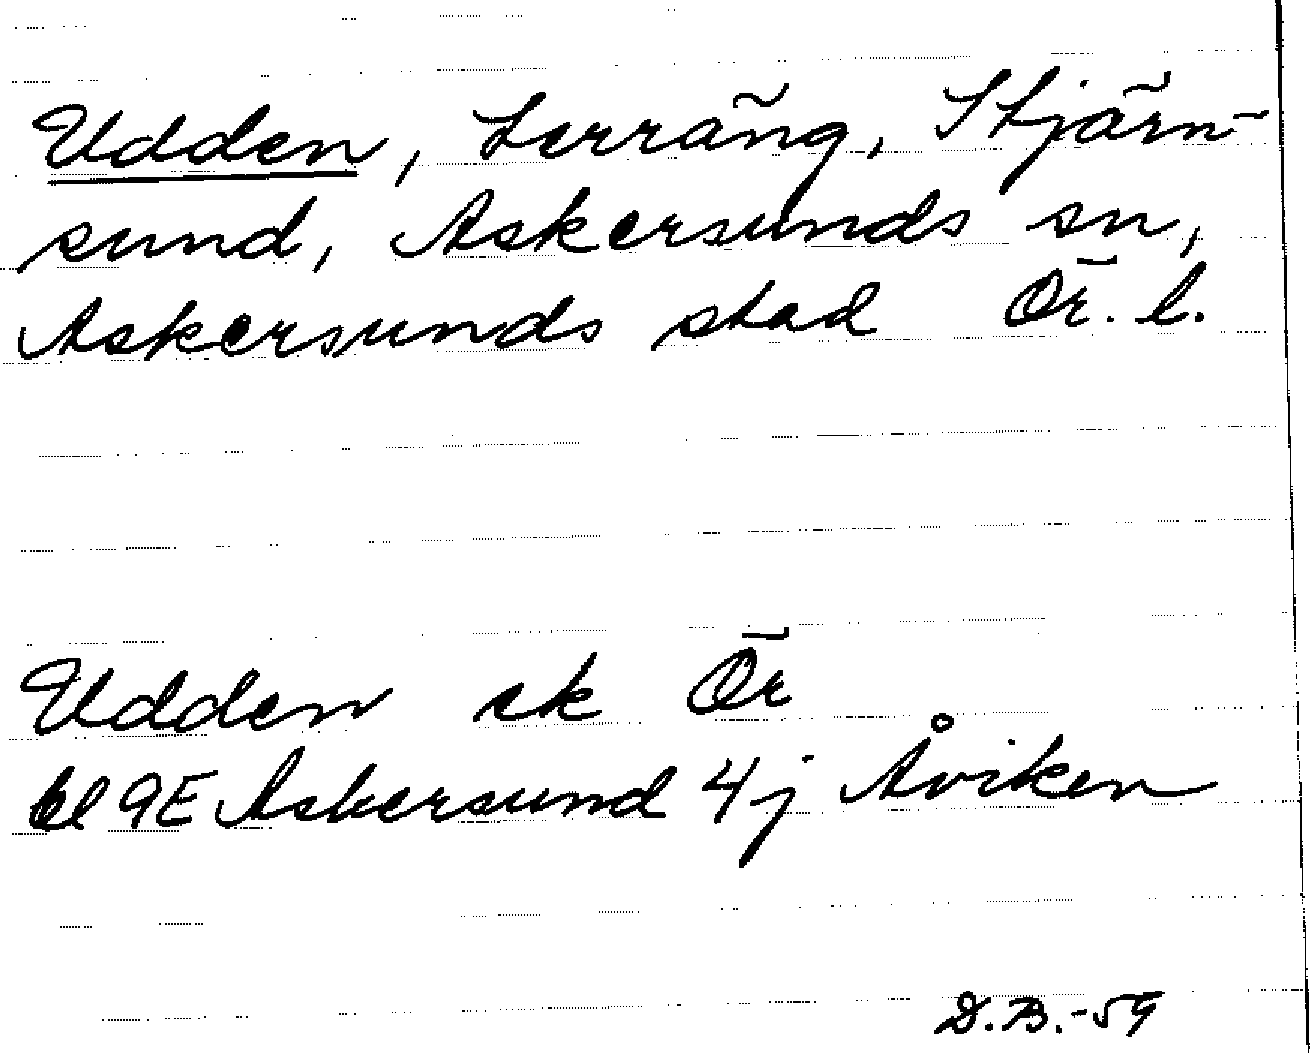 Udden, Lerräng, Stjärn-
sund, Askersunds sn,
Askersunds stad Ör. l.
Udden ek Ör
bl 9E Askersund 4j Åviken
D.B.-59